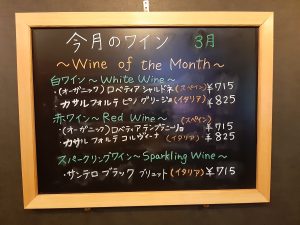 今月のワイン 3月
～Wine of the Month～
白ワイン～White Wine～
・(オーガニック)ロペティア シャルドネ (スペイン) ¥715
・カサル フォルテ ピノ グリージョ (イタリア) ¥825
赤ワイン～Red Wine～ (スペイン)
・(オーガニック)ロペティア テンプラニーリョ ¥715
・カサル フォルテ コルヴィーナ (イタリア) ¥825
スパークリングワイン～Sparkling Wine～
・サンテロ ブラック ブリュット (イタリア) ¥715